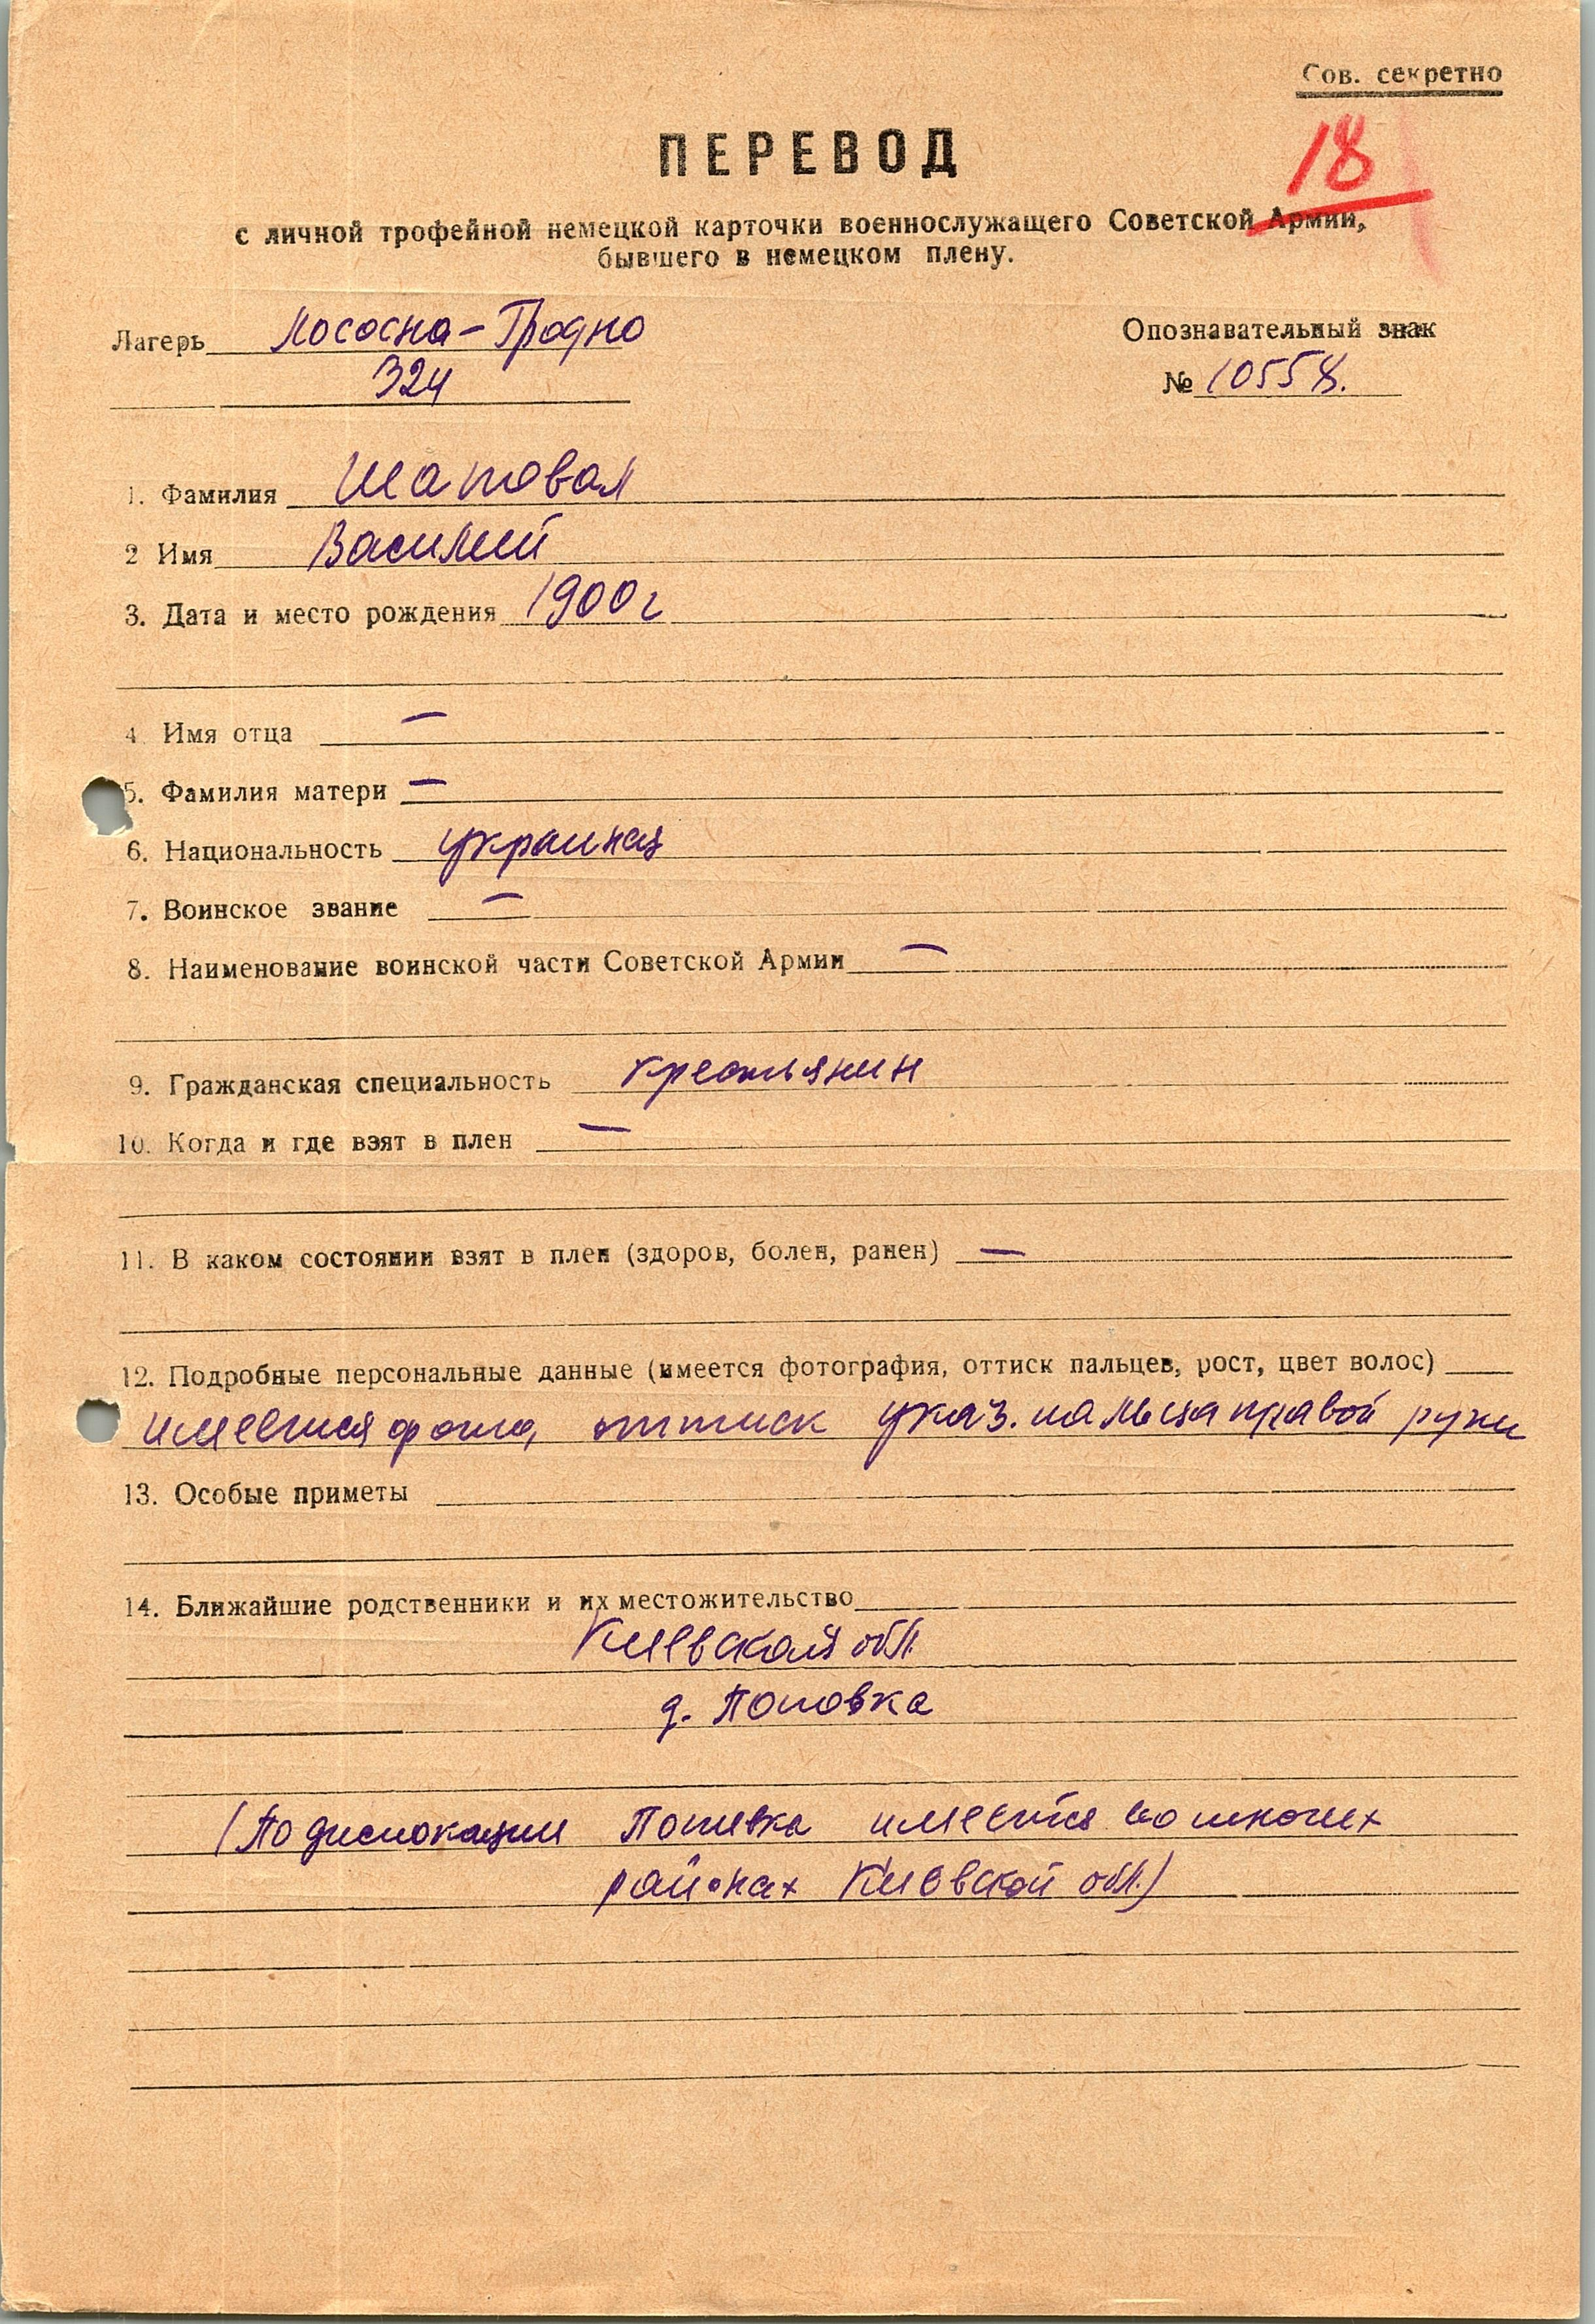 Сов. секретно
18
ПЕРЕВОД
с личной трофейной немецкой карточки военнослужащего Советской Армии,
бывшего в немецком плену.
Лагерь Лососна – Гродно
324
Опознавательный знак
№ 10558.
1. Фамилия Шаповал
2 Имя Василий
3. Дата и место рождения 1900 г
4. Имя отца —
5. Фамилия матери —
6. Национальность украинец
7. Воинское звание —
8. Наименование воинской части Советской Армии —
9. Гражданская специальность крестьянин
10. Когда и где взят в плен —
11. В каком состоянии взят в плен (здоров, болен, ранен) —
12. Подробные персональные данные (имеется фотография, оттиск пальцев, рост, цвет волос)
имеется фото, оттиск указ. пальца правой руки
13. Особые приметы
14. Ближайшие родственники и их местожительство
Киевская обл.
д. Поповка
(По дислокации Поповка имеется во многих
районах Киевской обл.)